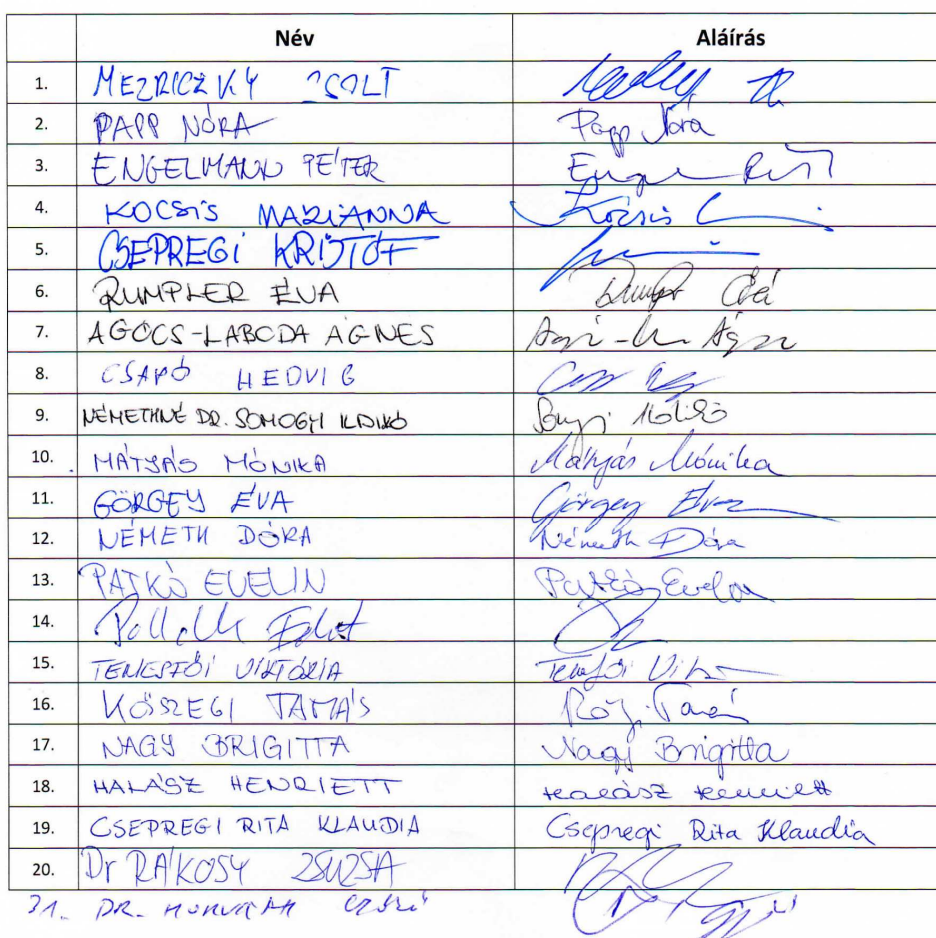 Név Aláírás
1. MEZRICZKY ZSOLT
2. PAPP NÓRA Papp Nóra
3. ENGELMANN PÉTER
4. KOCSIS MARIANNA Kocsis
5. CSEPREGI KRISTÓF
6. RUMPLER ÉVA
7. AGÓCS-LABODA ÁGNES
8. CSAPÓ HEDVIG
9. NÉMETHNÉ DR. SOMOGYI ILDIKÓ
10. MÁTYÁS MÓNIKA Mátyás Mónika
11. GÖRGEY ÉVA Görgey Éva
12. NÉMETH DÓRA Németh Dóra
13. PATKÓ EVELIN Patkó Evelin
14.
15. TEMESFŐI VIKTÓRIA
16. KŐSZEGI TAMÁS
17. NAGY BRIGITTA Nagy Brigitta
18. HALÁSZ HENRIETT Halász Henriett
19. CSEPREGI RITA KLAUDIA Csepregi Rita Klaudia
20. Dr RÁKOSY ZSUZSA
DR. HORVÁTH